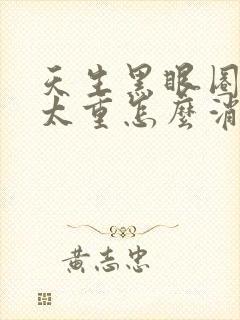 天生黑眼圈
太重怎麼消
黃志忠